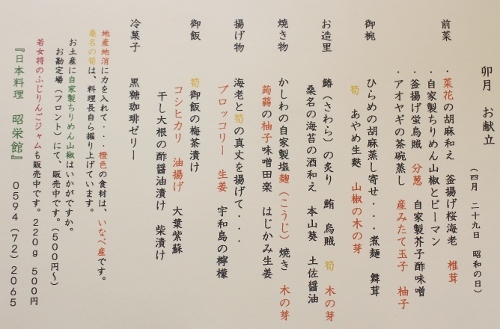 卯月　お献立
（四月　二十九日　昭和の日）
前菜　・菜花の胡麻和え　釜揚げ桜海老　椎茸
・自家製ちりめん山椒とピーマン
・釜揚げ蛍烏賊　分葱　自家製芥子酢味噌
・アオヤギの茶碗蒸し　産みたて玉子　柚子
御椀　ひらめの胡麻蒸し寄せ・・・煮麺　舞茸
筍　あやめ生麩　山椒の木の芽
お造里　鰆（さわら）の炙り　鮪　烏賊　筍　木の芽
桑名の海苔の酒和え　本山葵　土佐醤油
焼き物　かしわの自家製塩麹（こうじ）焼き　木の芽
蒟蒻の柚子味噌田楽　はじかみ生姜
揚げ物　海老と筍の真丈を揚げて・・・
ブロッコリー　生姜　宇和島の檸檬
御飯　筍御飯の梅茶漬け
コシヒカリ　油揚げ　大葉紫蘇
干し大根の酢醤油漬け　柴漬け
冷菓子　黒糖珈琲ゼリー
地産地消に力を入れて・・・橙色の食材は、いなべ産です。
桑名の筍は、料理長自ら掘り上げています。
お土産に自家製ちりめん山椒はいかがですか。
お勘定場（フロント）にて、販売中です。（500円～）
若女将のふじりんごジャムも販売中です。220g　500円
『日本料理　昭栄館』　0594（72）2065